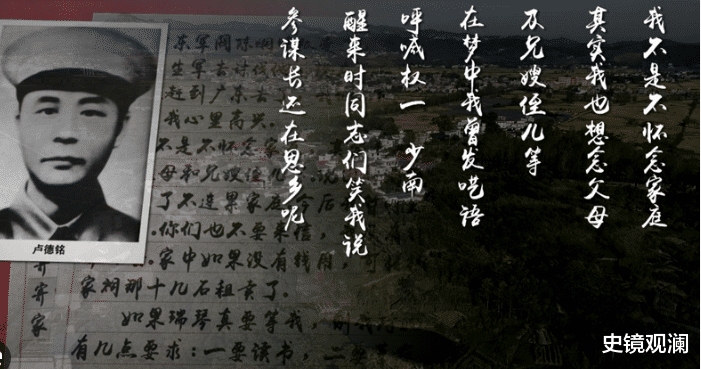 我不是不怀念家庭
其实我也想念父母
及兄嫂侄儿等
在梦中我曾发呓语
呼喊权一 少南
醒来时同志们笑我说
参谋长还在思乡呢
卢德铭
赶到广东去
我心里高兴
不是不怀念家
母和兄嫂侄儿
了不连累家庭
你们也不要来信
家中如果没有钱用
家祠那十几石租卖了。
如果瑞琴真要等我,
有几点要求:一要读书,二要
家
史镜观澜